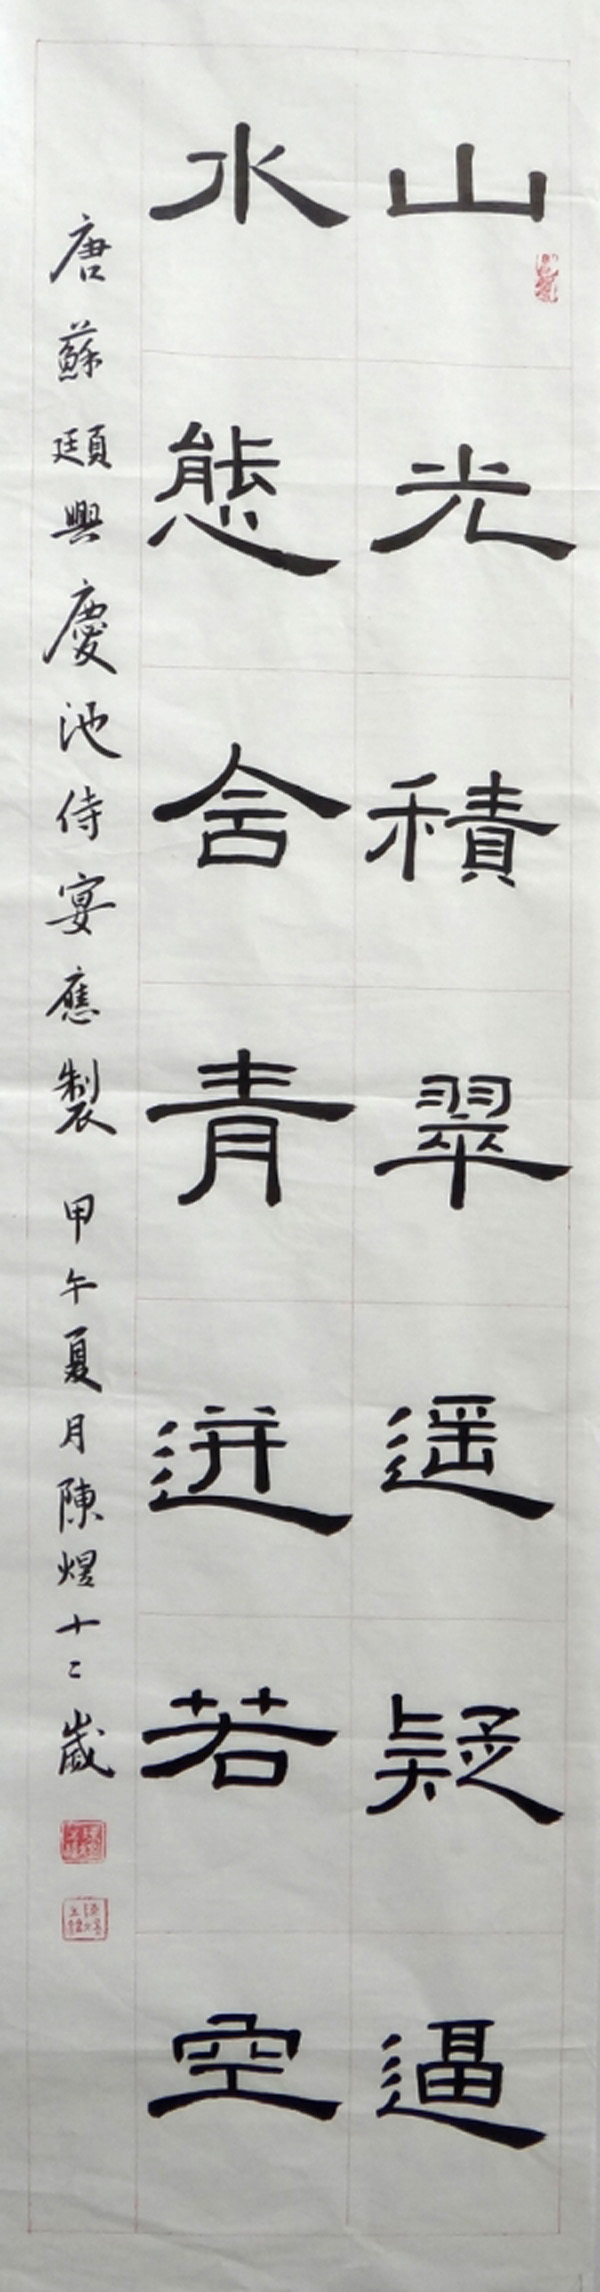 山光積翠遥疑逼
水態含青迸若空
唐蘇頲興慶池侍宴應製 甲午夏月陳煜十二歲